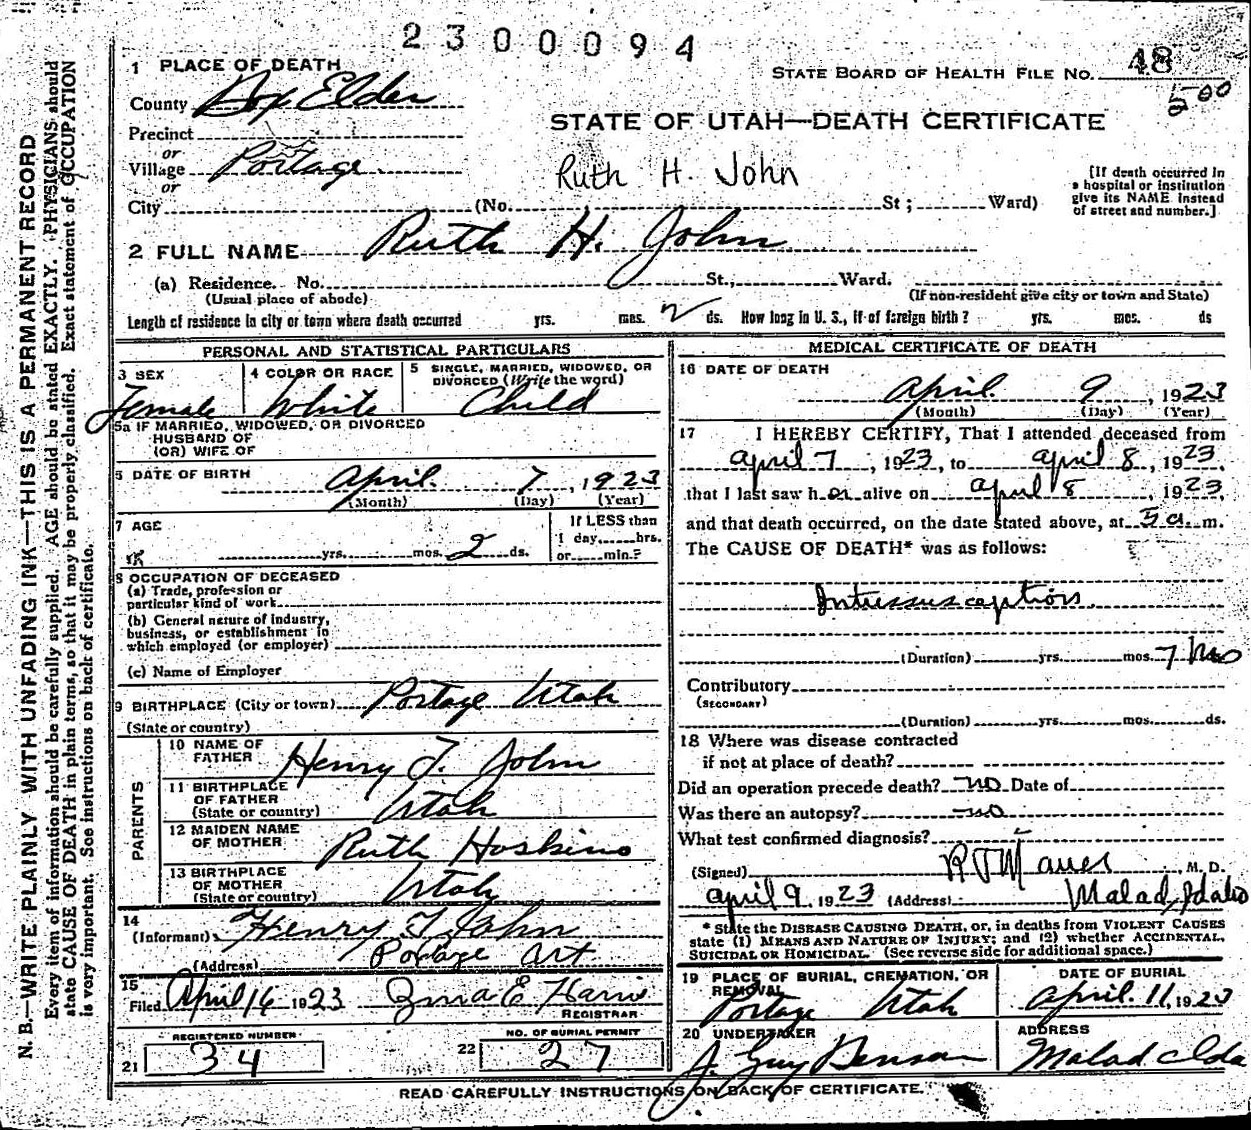 2300094
1 PLACE OF DEATH
STATE BOARD OF HEALTH FILE NO. 48
500
County Box Elder
STATE OF UTAH—DEATH CERTIFICATE
Precinct
or
Village Portage
Ruth H. John
[If death occurred in
a hospital or institution
give its NAME instead
of street and number.]
or
City (No. St; Ward)
2 FULL NAME Ruth H. John
(a) Residence. No. St., Ward.
(Usual place of abode) (If non-resident give city or town and State)
Length of residence in city or town where death occurred yrs. mos. 2 ds. How long in U. S., if of foreign birth? yrs. mos. ds
PERSONAL AND STATISTICAL PARTICULARS
3 SEX
Female
4 COLOR OR RACE
White
5 SINGLE, MARRIED, WIDOWED, OR
DIVORCED (Write the word)
Child
5a IF MARRIED, WIDOWED, OR DIVORCED
HUSBAND OF
(OR) WIFE OF
6 DATE OF BIRTH
April 7, 1923
(Month) (Day) (Year)
7 AGE
yrs. mos. 2 ds.
If LESS than
1 day, hrs.
or min.?
8 OCCUPATION OF DECEASED
(a) Trade, profession or
particular kind of work
(b) General nature of industry,
business, or establishment in
which employed (or employer)
(c) Name of Employer
9 BIRTHPLACE (City or town) Portage Utah
(State or country)
PARENTS
10 NAME OF
FATHER Henry T. John
11 BIRTHPLACE
OF FATHER
(State or country) Utah
12 MAIDEN NAME
OF MOTHER Ruth Hoskins
13 BIRTHPLACE
OF MOTHER
(State or country) Utah
14
(Informant) Henry T John
(Address) Portage
15
Filed April 16 1923 E. Harris
REGISTRAR
REGISTERED NUMBER
21 34
NO. OF BURIAL PERMIT
22 27
MEDICAL CERTIFICATE OF DEATH
16 DATE OF DEATH
April 9, 1923
(Month) (Day) (Year)
17 I HEREBY CERTIFY, That I attended deceased from
april 7, 1923, to april 8, 1923,
that I last saw her alive on april 8, 1923,
and that death occurred, on the date stated above, at 5 a. m.
The CAUSE OF DEATH* was as follows:
Intussusception
(Duration) yrs. mos. 7
Contributory
(SECONDARY)
(Duration) yrs. mos. ds.
18 Where was disease contracted
if not at place of death?
Did an operation precede death? no Date of
Was there an autopsy? no
What test confirmed diagnosis?
(Signed) M. D.
april 9 1923 (Address) Malad, Idaho
* State the DISEASE CAUSING DEATH, or, in deaths from VIOLENT CAUSES
state (1) MEANS AND NATURE OF INJURY; and (2) whether ACCIDENTAL,
SUICIDAL OR HOMICIDAL. (See reverse side for additional space.)
19 PLACE OF BURIAL, CREMATION, OR
REMOVAL
Portage Utah
DATE OF BURIAL
April 11, 1923
20 UNDERTAKER
J. Guy Benson
ADDRESS
Malad Ida
READ CAREFULLY INSTRUCTIONS ON BACK OF CERTIFICATE.
N. B.—WRITE PLAINLY WITH UNFADING INK—THIS IS A PERMANENT RECORD
Every item of information should be carefully supplied. AGE should be stated EXACTLY. PHYSICIANS should
state CAUSE OF DEATH in plain terms, so that it may be properly classified. Exact statement of OCCUPATION
is very important. See instructions on back of certificate.